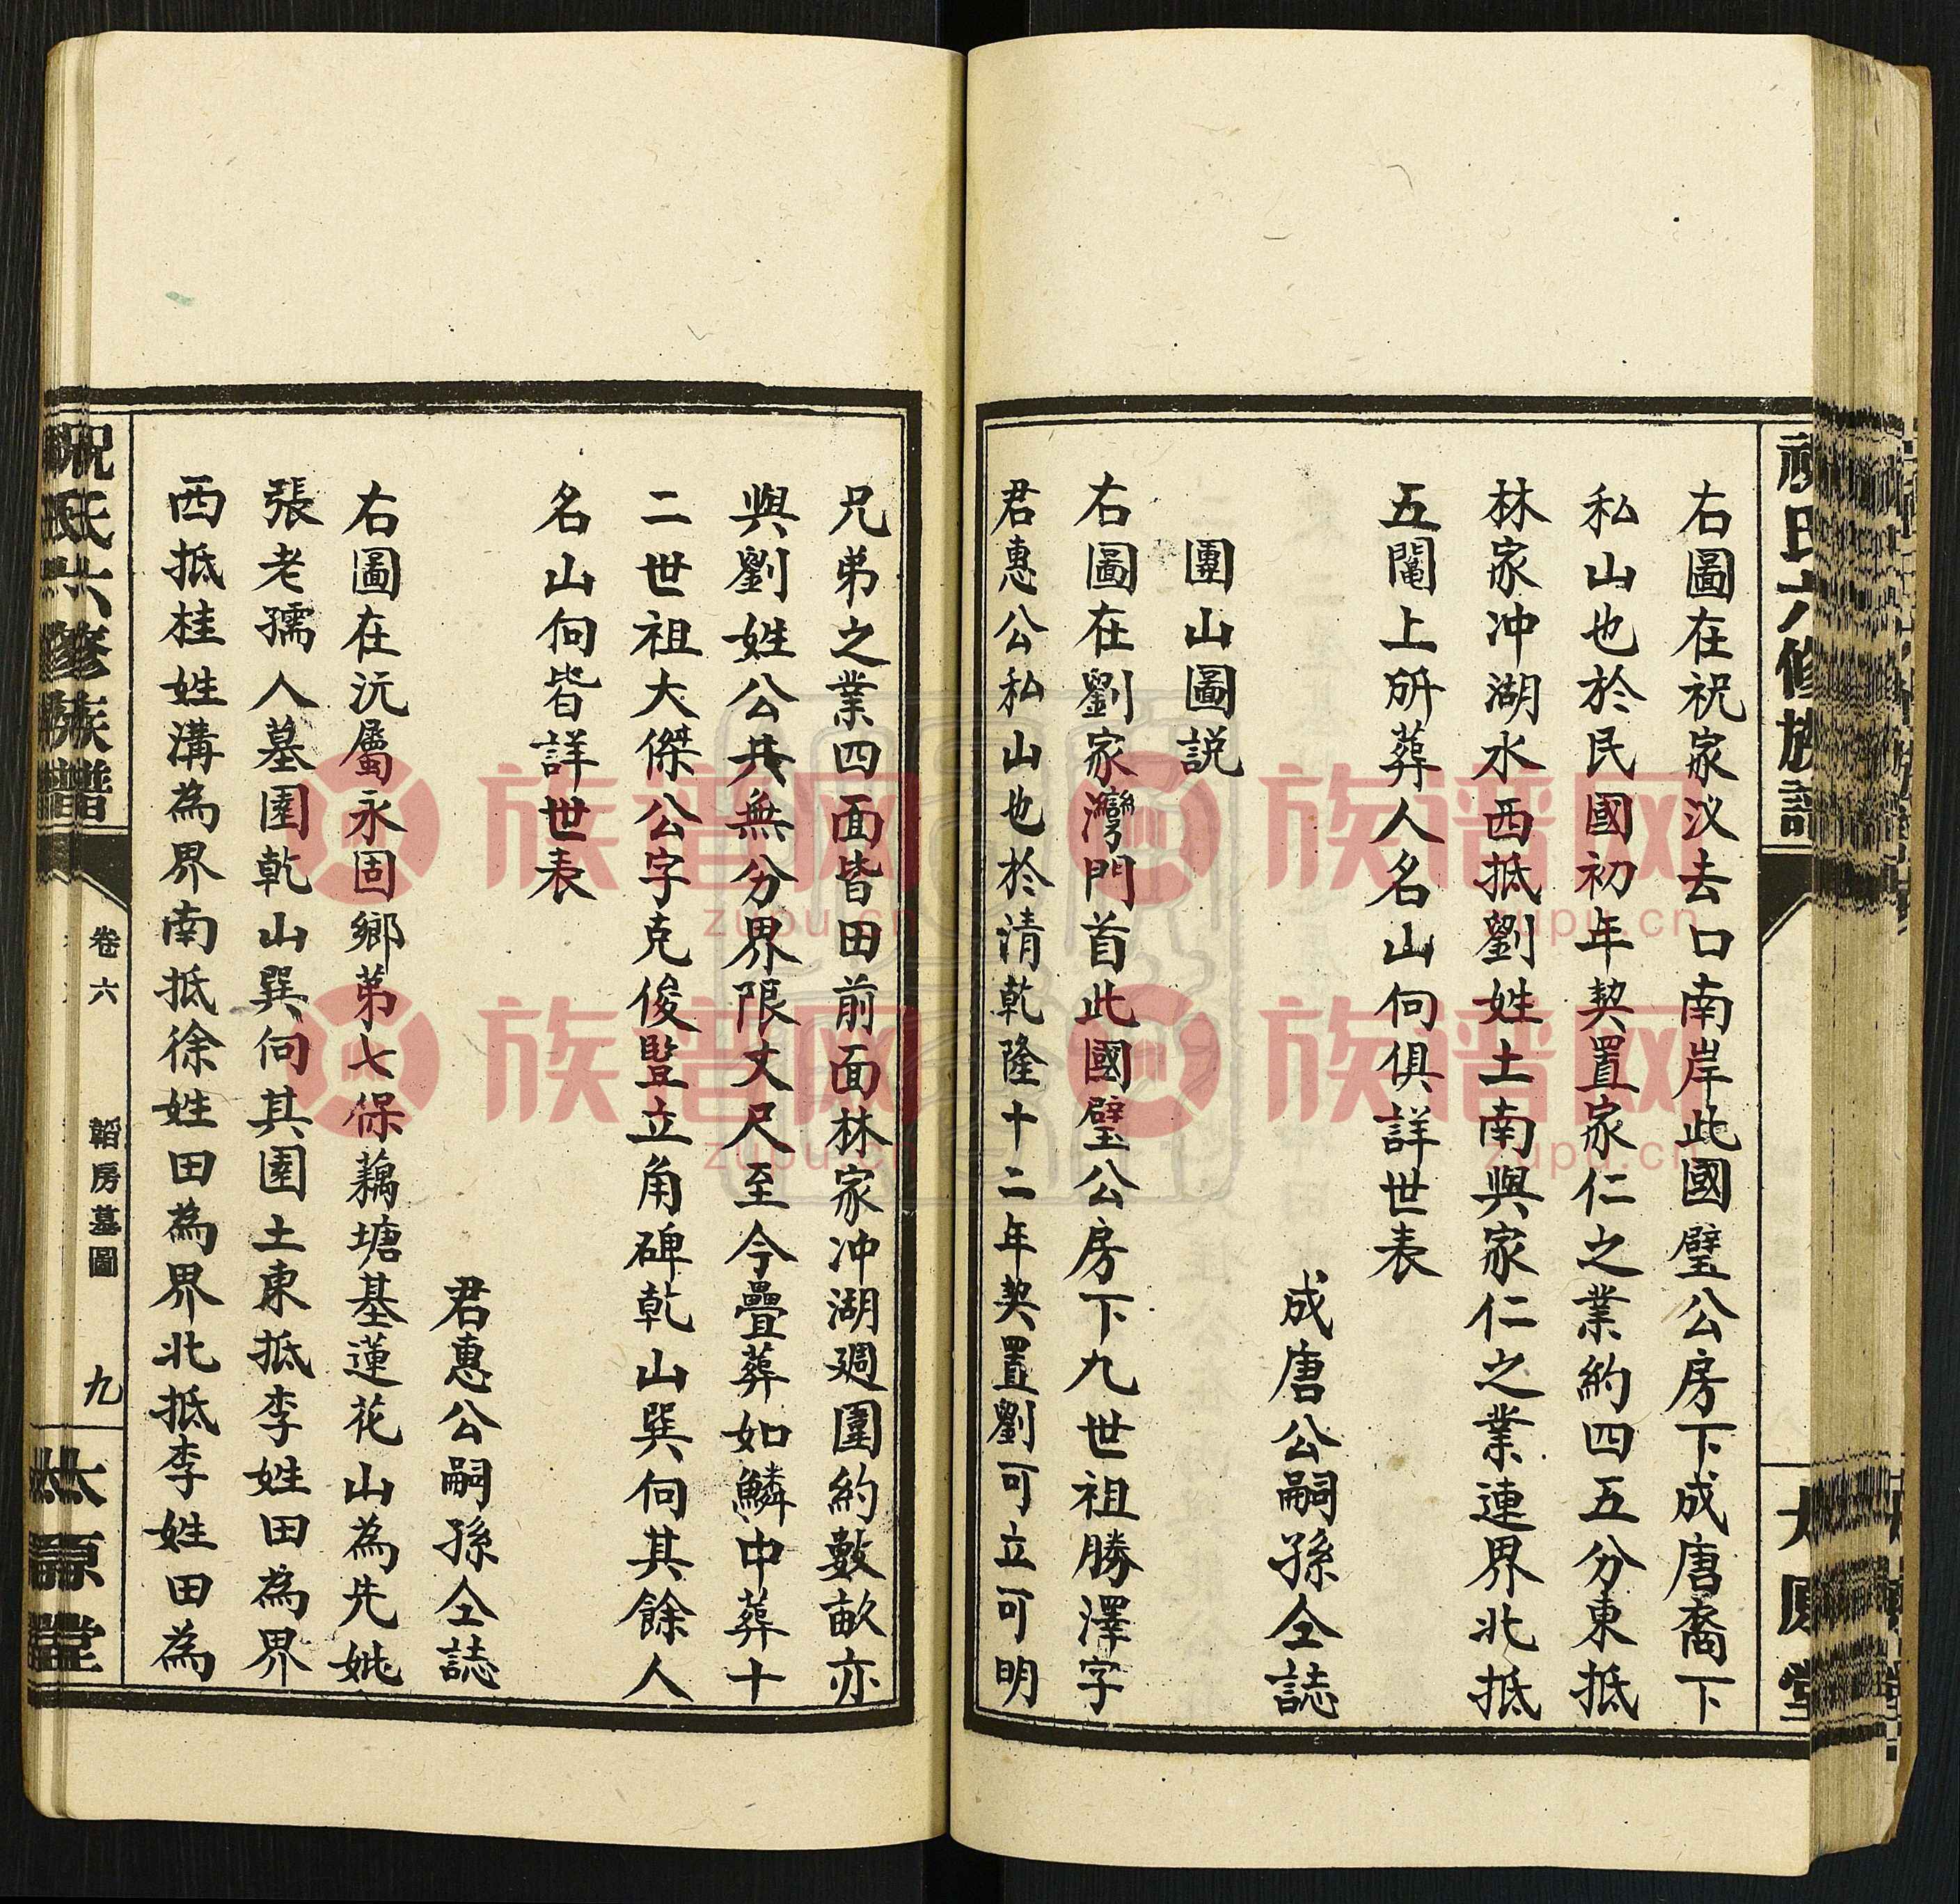 右圖在祝家汊去口南岸此國璧公房下成唐裔下
私山也於民國初年契置家仁之業約四五分東抵
林家冲湖水西抵劉姓土南與家仁之業連界北抵
五閹上所葬人名山向俱詳世表
成唐公嗣孫仝誌
團山圖説
右圖在劉家灣門首此國璧公房下九世祖勝澤字
君惠公私山也於清乾隆十二年契置劉可立可明
兄弟之業四面皆田前面林家冲湖週圍約數畝亦
與劉姓公共無分界限丈尺至今疊葬如鱗中葬十
二世祖大傑公字克俊豎立角碑乾山巽向其餘人
名山向皆詳世表
君惠公嗣孫仝誌
右圖在沅屬永固鄉弟七保藕塘基蓮花山為先妣
張老孺人墓園乾山巽向其園土東抵李姓田為界
西抵桂姓溝為界南抵徐姓田為界北抵李姓田為
祝氏六修族譜
卷六
韜房墓圖
九
太原堂
族谱网
zupu.cn
族谱网
zupu.cn
族谱网
zupu.cn
族谱网
zupu.cn